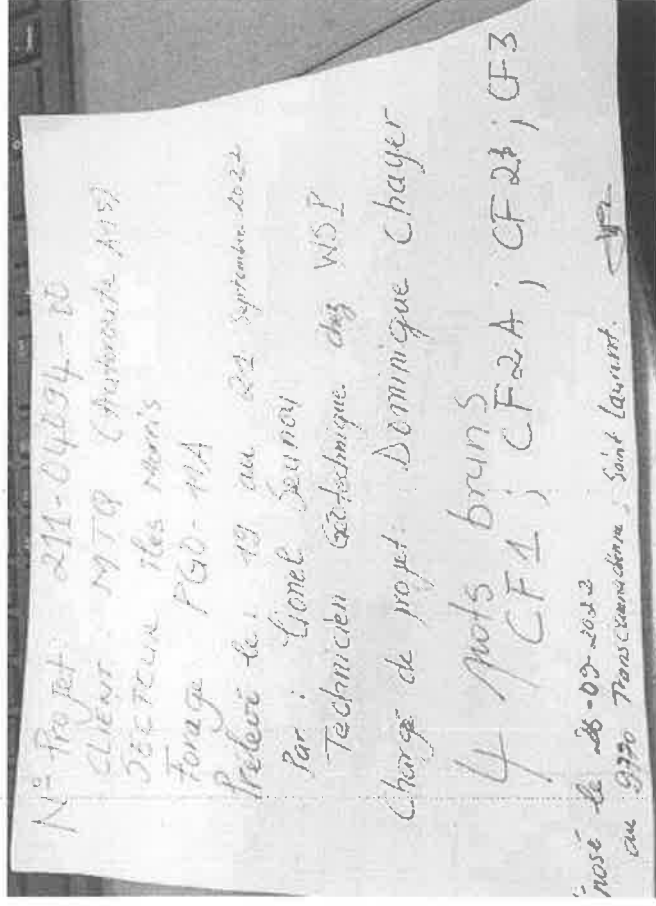 N° Projet 211-04494-00
CLIENT : MTQ (Autoroute A15)
SECTEUR Iles Morris
Forage PG0-11A
Prélevé le : 19 au 21 Septembre 2022
Par : Lionel
Technicien Géotechnique chez WSP
Chargé de projet : Dominique Chayer
4 pots bruns
CF1 ; CF2A ; CF2B ; CF3
posé le 26-09-2022
au 9770 Transcanadienne, Saint Laurent.